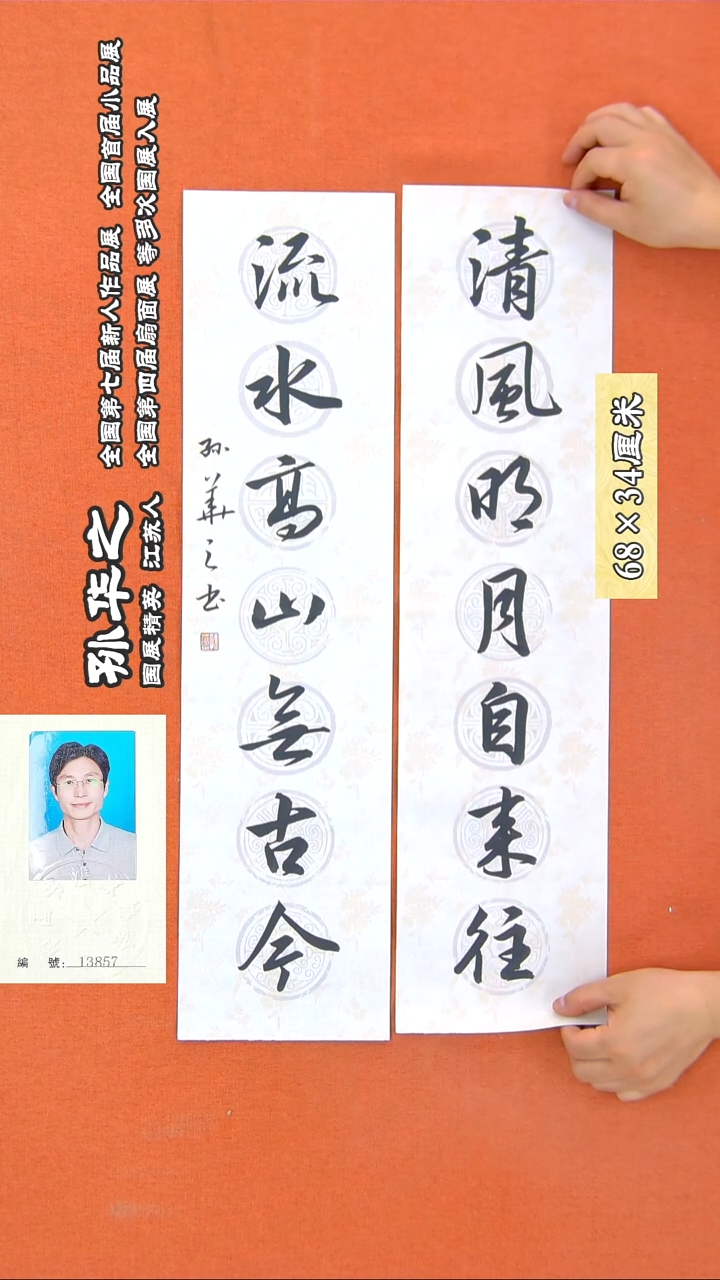 清風明月自来往
流水高山無古今
孙華之书
孙华之
国展精英 江苏人
全国第七届新人作品展 全国首届小品展
全国第四届扇面展 等多次国展入展
68×34厘米
編 號: 13857